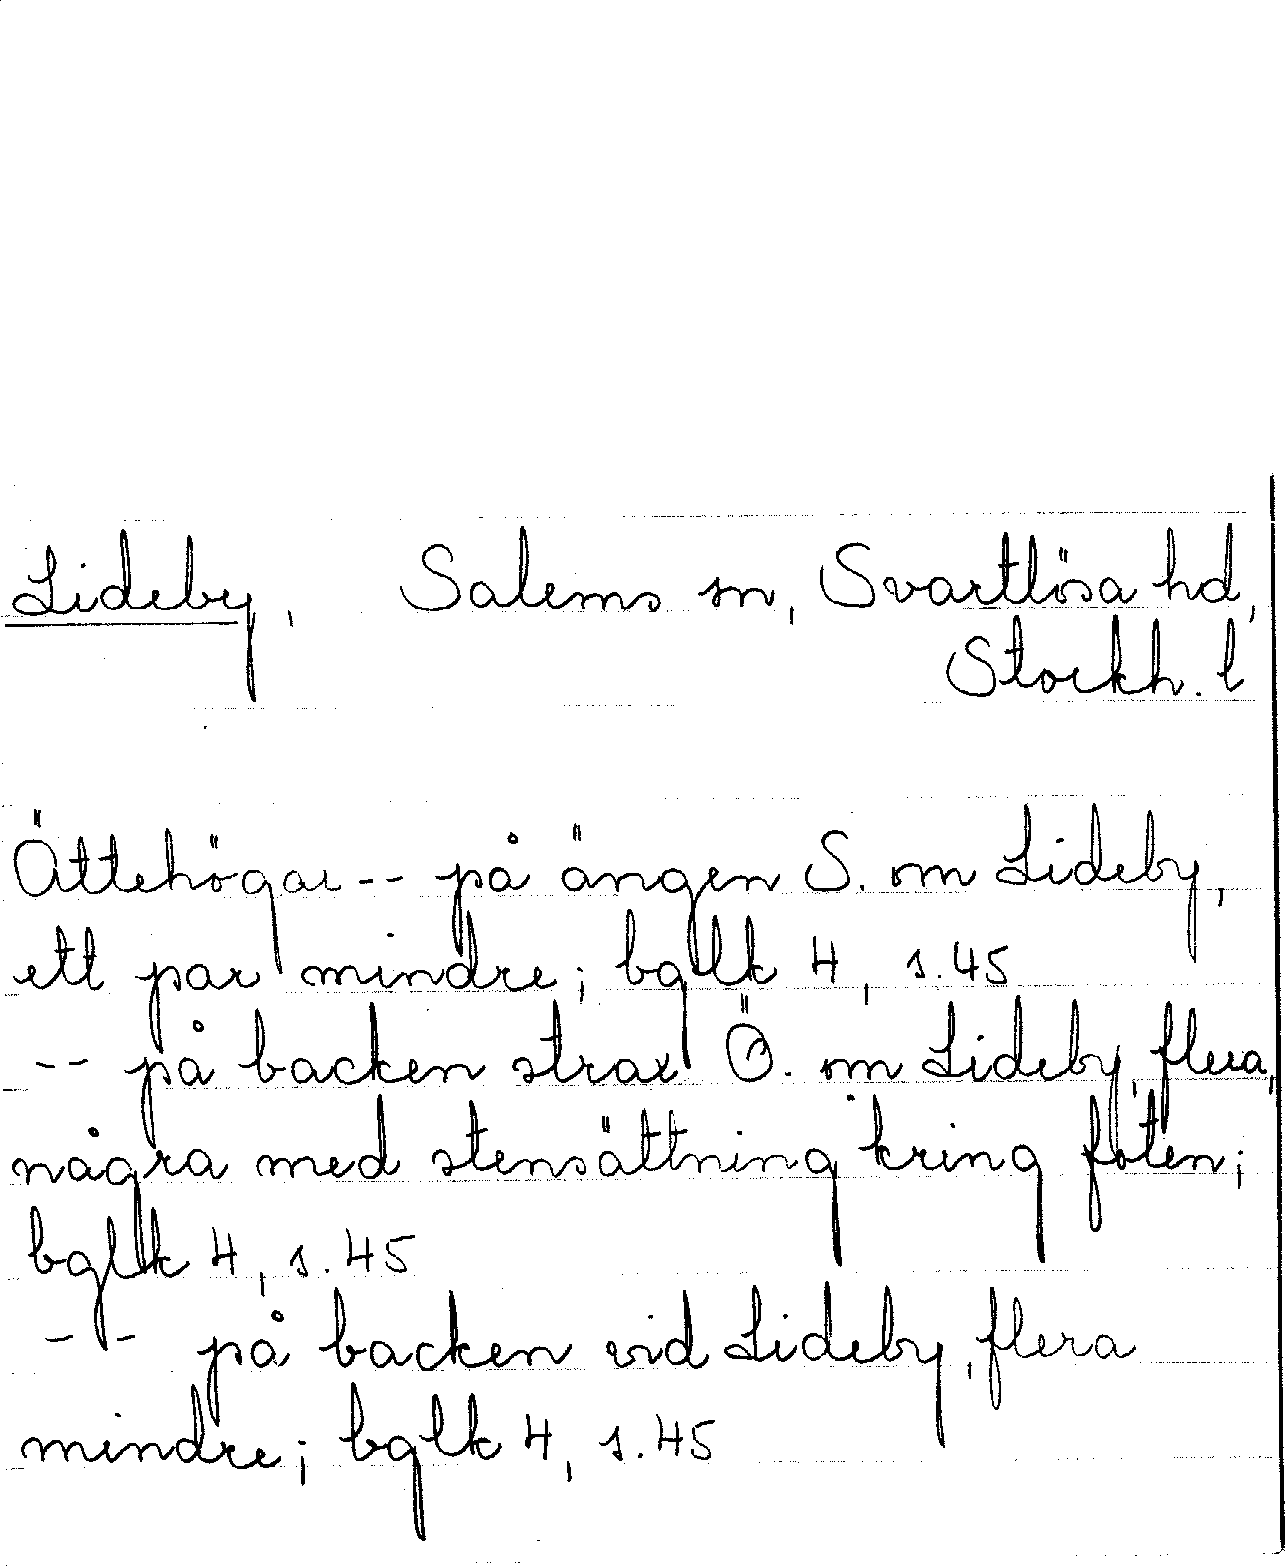 Lideby, Salems sn, Svartlösa hd,
Stockh. l
Ättehögar -- på ängen S. om Lideby,
ett par mindre; bglk 4, s. 45
-- på backen strax Ö. om Lideby, flera,
några med stensättning kring foten;
bglk 4, s. 45
-- på backen vid Lideby, flera
mindre; bglk 4, s. 45